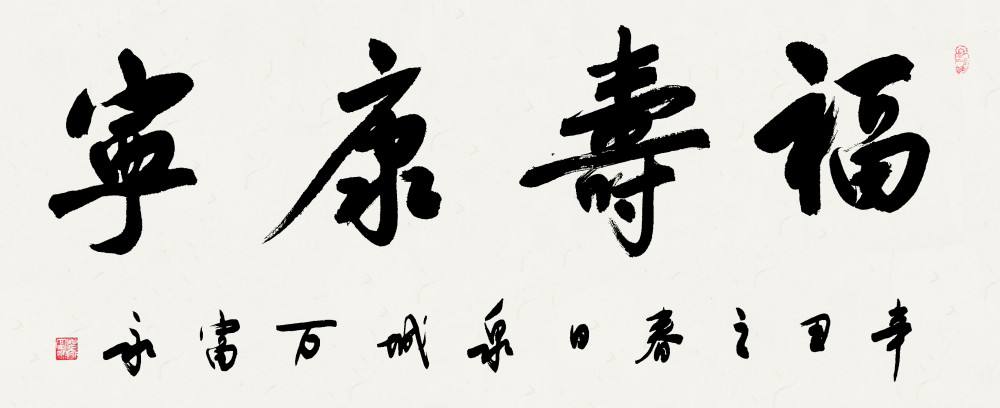 福壽康寧
辛丑之春日泉城万富永